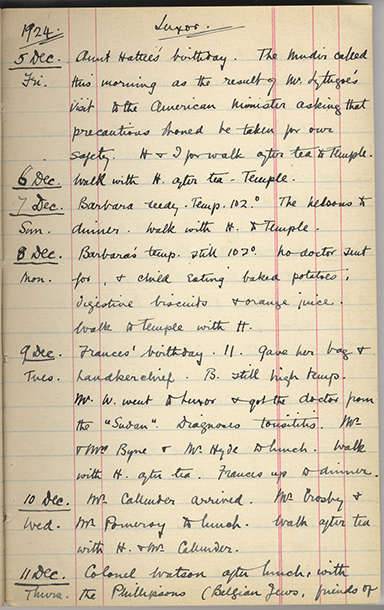 1924. Luxor.
5 Dec. Aunt Hattie's birthday. The Mudir called
Fri. this morning as the result of Mr. Lythgoe's
visit to the American Minister asking that
precautions should be taken for our
safety. H & I for walk after tea to Temple.
6 Dec. Walk with H. after tea - Temple.
7 Dec. Barbara seedy. Temp. 102.° The Nelsons to
Sun. dinner. Walk with H. to Temple.
8 Dec. Barbara's temp. still 102° no doctor sent
Mon. for, & child eating baked potatoes,
digestive biscuits & orange juice.
Walk to Temple with H.
9 Dec. Frances' birthday. 11. Gave her bag &
Tues. handkerchief. B. still high temp.
Mr. W. went to Luxor & got the doctor from
the "Sudan". Diagnoses tonsilitis. Mr
& Mrs Byne & Mr. Hyde to lunch. Walk
with H. after tea. Frances up to dinner.
10 Dec. Mr. Callender arrived. Mr. Crosby &
Wed. Mr. Pomeroy to lunch. Walk after tea
with H. & Mr. Callender.
11 Dec. Colonel Watson after lunch, with
Thurs. the Phillipsons (Belgian Jews, friends of